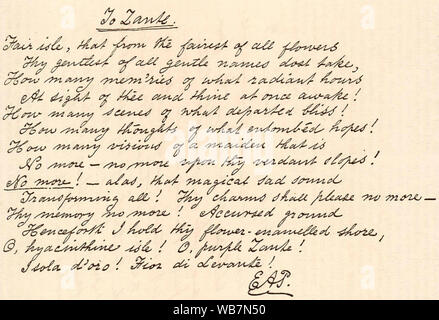 To Zante.
Fair isle, that from the fairest of all flowers
Thy gentlest of all gentle names dost take,
How many mem'ries of what radiant hours
At sight of thee and thine at once awake!
How many scenes of what departed bliss!
How many thoughts of what entombéd hopes!
How many visions of a maiden that is
No more — no more upon thy verdant slopes!
No more! — alas, that magical sad sound
Transforming all! Thy charms shall please no more —
Thy memory no more! Accursed ground
Henceforth I hold thy flower-enamelled shore,
O, hyacinthine isle! O, purple Zante!
Isola d'oro! Fior di Levante!
EAP.
alamy
alamy
Image ID: WB7N50
www.alamy.com